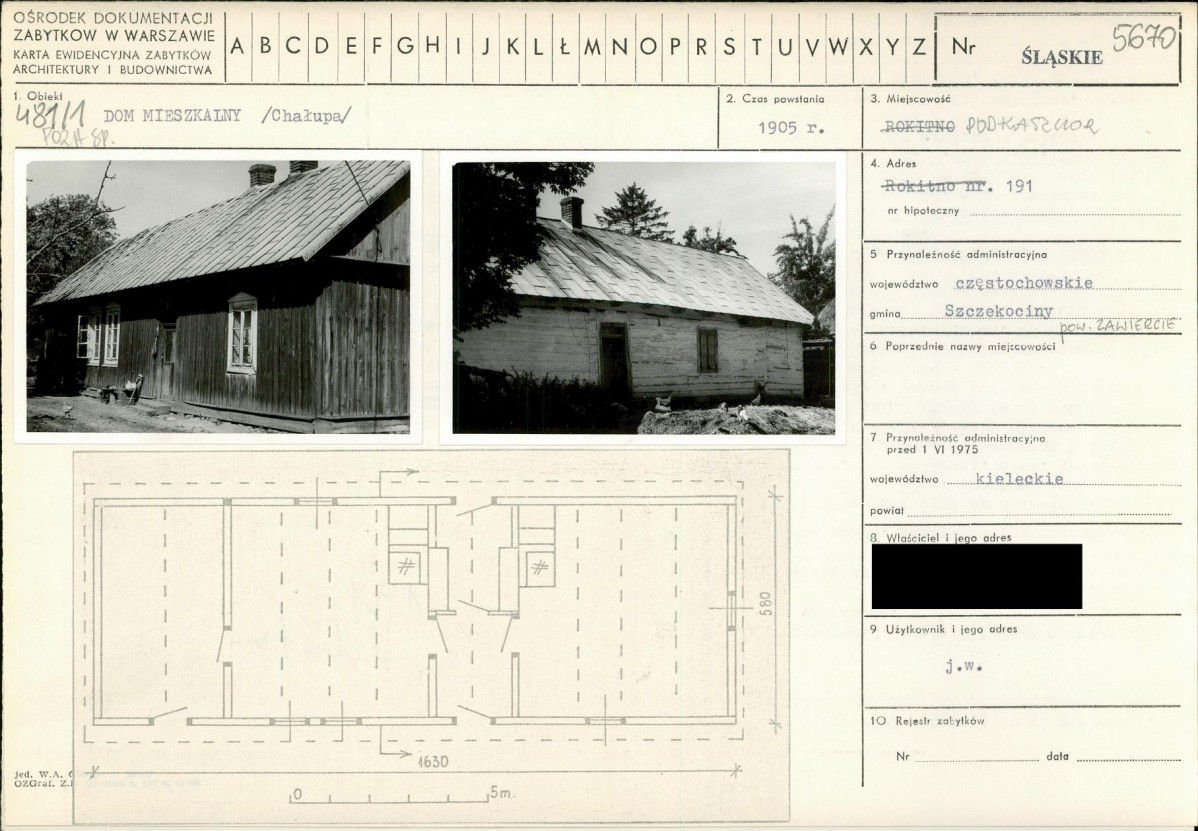 OŚRODEK DOKUMENTACJI
ZABYTKOW W WARSZAWIE
KARTA EWIDENCYJNA ZABYTKÓW
ARCHITEKTURY I BUDOWNICTWA
A B C D E F G H I J K L Ł M N O P R S T U V W X Y Z
Nr
ŚLĄSKIE
5670
1. Obiekt
481/1 DOM MIESZKALNY /Chałupa/
2. Czas powstania
1905 r.
3. Miejscowość
ROKITNO
4. Adres
Rokitno nr. 191
nr hipoteczny
5 Przynależność administracyjna
województwo częstochowskie
gmina Szczekociny
pow. ZAWIERCIE
6 Poprzednie nazwy miejscowości
7. Przynależność administracyjna
przed 1 VI 1975
województwo kieleckie
powiat
8. Właściciel i jego adres
9 Użytkownik i jego adres
j.w.
10. Rejestr zabytków
Nr data
580
1630
0 5m.
jed. W.A.
OZGraf. Z.